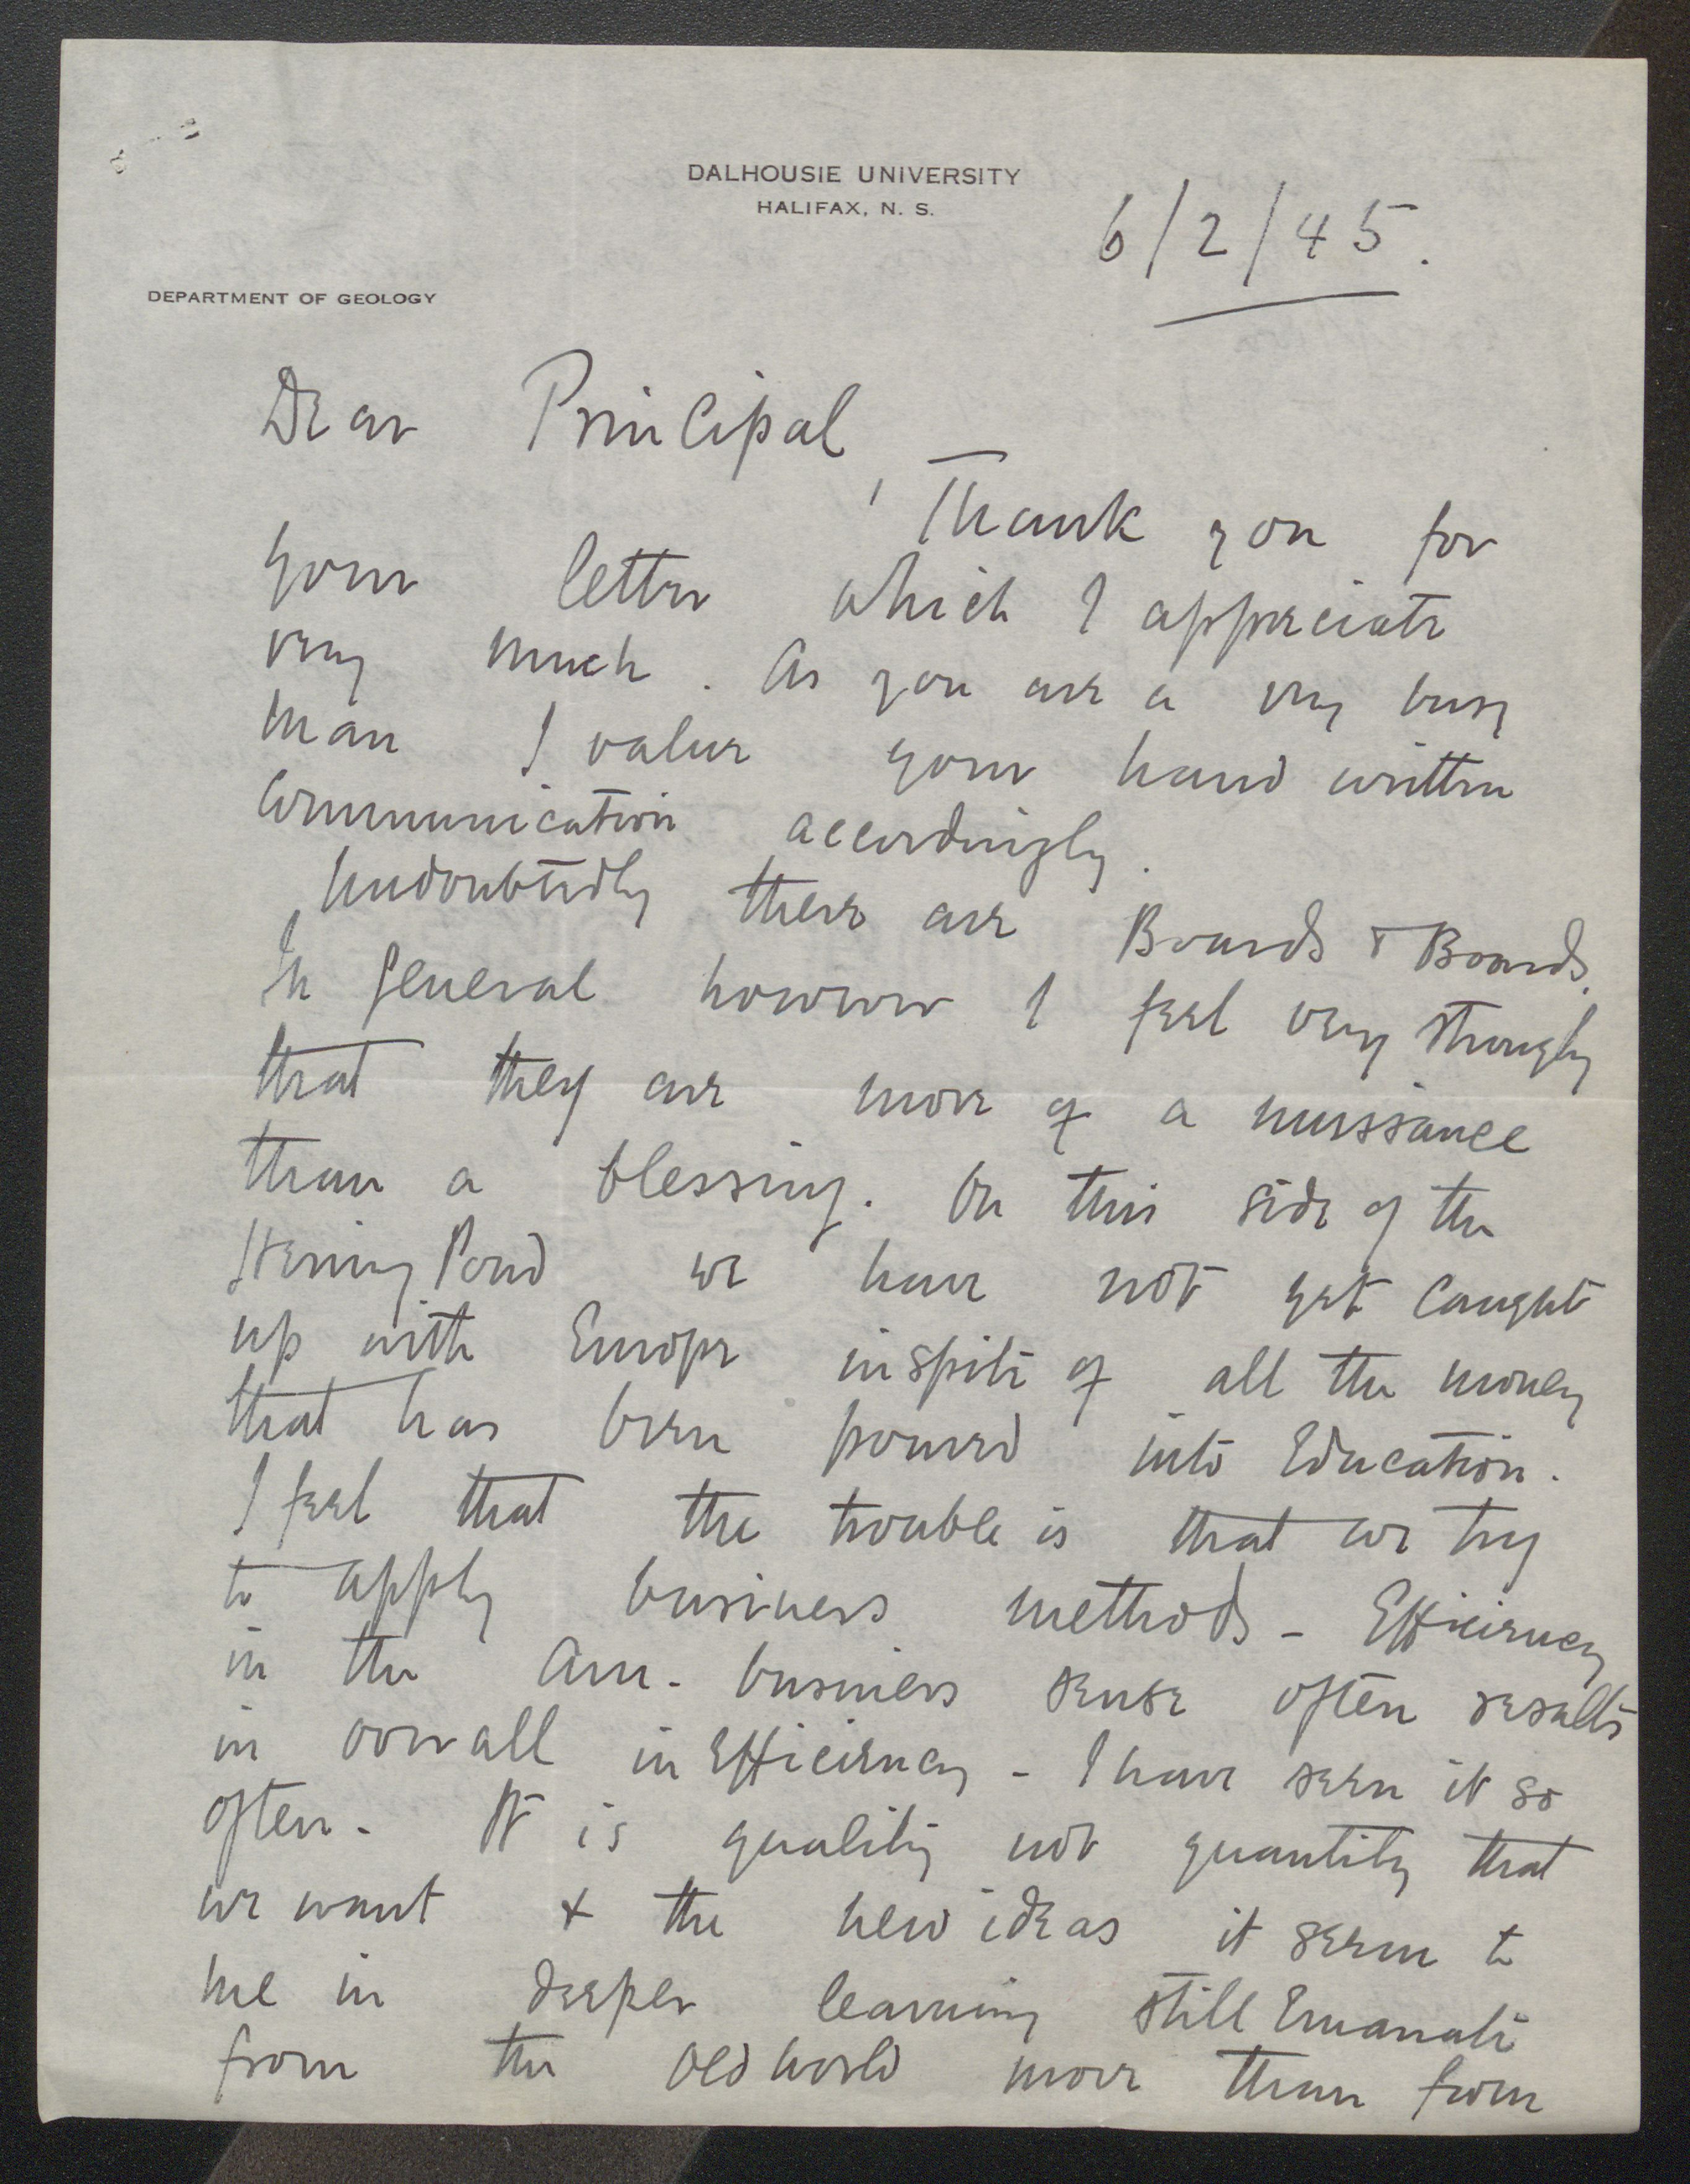 DALHOUSIE UNIVERSITY
HALIFAX, N. S.
6/2/45.
DEPARTMENT OF GEOLOGY
Dear Principal,
Thank you for
your letter which I appreciate
very much. As you are a very busy
man I value your hand written
communication accordingly.
Undoubtedly there are Boards & Boards.
In general however I feel very strongly
that they are more of a nuissance
than a blessing. On this side of the
Herring Pond we have not yet caught
up with Europe inspite of all the money
that has been poured into Education.
I feel that the trouble is that we try
to apply business methods - Efficiency
in the Am. business sense often results
in overall inEfficiency - I have seen it so
often. It is quality not quantity that
we want & the new ideas it seem to
me in deeper learning still Emanate
from the old world more than from